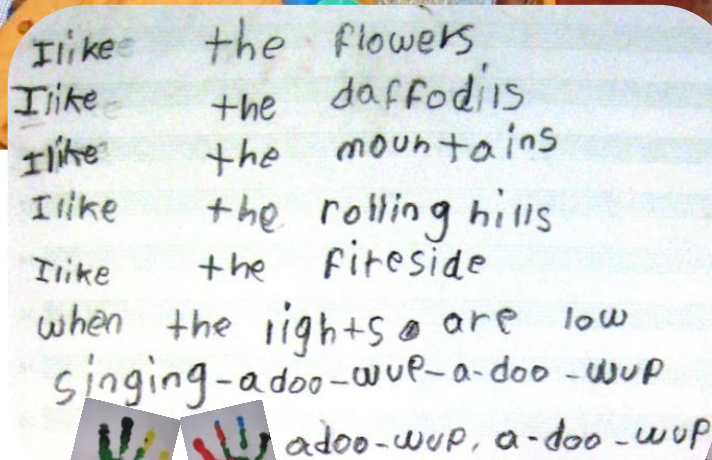 I like the flowers
I like the daffodils
I like the mountains
I like the rolling hills
I like the fireside
when the lights are low
singing-adoo-wup-a-doo-wup
adoo-wup, a-doo-wup